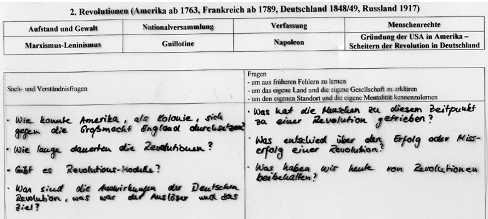 2. Revolutionen (Amerika ab 1763, Frankreich ab 1789, Deutschland 1848/49, Russland 1917)
Aufstand und Gewalt
Nationalversammlung
Verfassung
Menschenrechte
Marxismus-Leninismus
Guillotine
Napoleon
Gründung der USA in Amerika –
Scheitern der Revolution in Deutschland
Sach- und Verständnisfragen
· Wie konnte Amerika, als Kolonie, sich
gegen die Großmacht England durchsetzen?
· Wie lange dauerten die Revolutionen?
· Gibt es Revolutions-Module?
· Was sind die Auswirkungen der Deutschen
Revolution, was war der Auslöser und das
Ziel?
Fragen
- um aus früheren Fehlern zu lernen
- um das eigene Land und die eigene Gesellschaft zu erklären
- um den eigenen Standort und die eigene Mentalität kennenzulernen
· Was hat die Menschen zu diesem Zeitpunkt
zu einer Revolution getrieben?
· Was entschied über den Erfolg oder Miss-
erfolg einer Revolution?
· Was haben wir heute von Revolutionen
beibehalten?